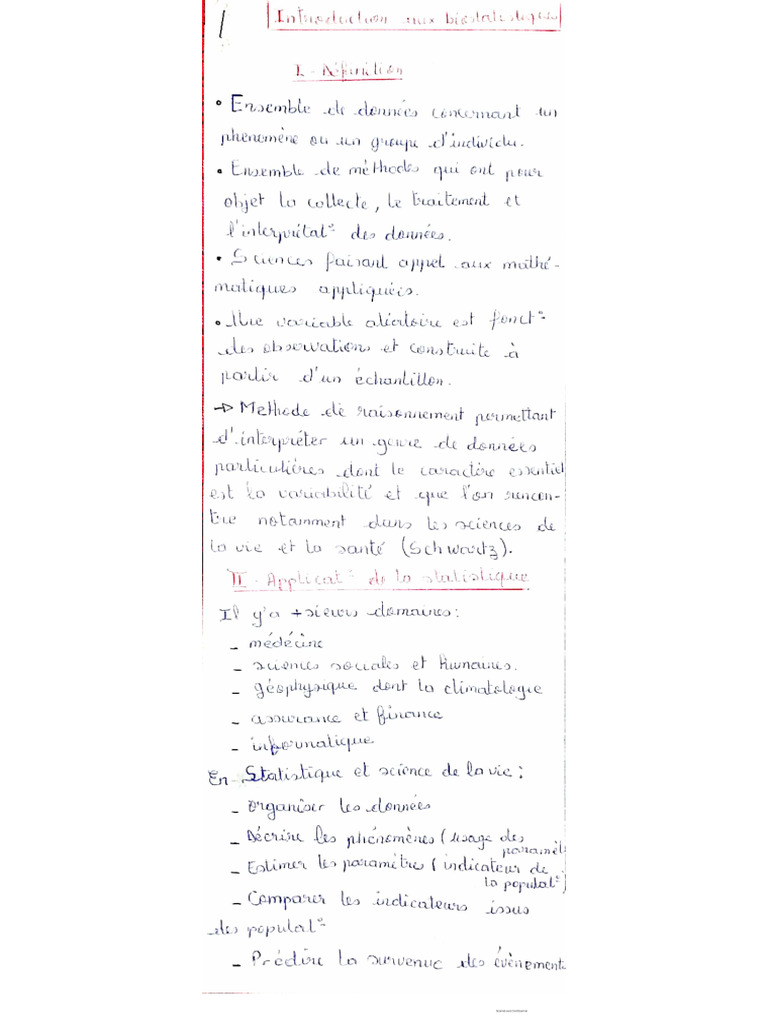 1
Introduction aux biostatistiques
I - Définition
• Ensemble de données concernant un
phenomène ou un groupe d'individu.
• Ensemble de méthodes qui ont pour
objet la collecte, le traitement et
l'interprétat° des données.
• Sciences faisant appel aux mathé-
matiques appliquées.
• Une variable aléatoire est fonct°
des observations et construite à
partir d'un échantillon.
→ Methode de raisonnement permettant
d'interpréter un genre de données
particulières dont le caractère essentiel
est la variabilité et que l'on rencon-
tre notamment dans les sciences de
la vie et la santé (Schwartz).
II - Applicat° de la statistique
Il y'a +sieurs domaines :
- médécine
- sciences sociales et humaines.
- géophysique dont la climatologie
- assurance et finance
- informatique
En Statistique et science de la vie :
- Organiser les données
- Décrire les phénomènes (usage des
paramèt
- Estimer les paramètres (indicateur de
la populat°)
- Comparer les indicateurs issus
des populat°
- Prédire la survenue des évènement